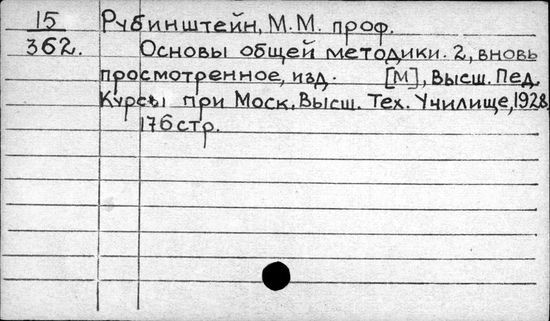 15 Рубинштейн, М.М. проф.
362. Основы общей методики. 2, вновь
просмотренное, изд. [М], Высш. Пед.
Курсы при Моск. Высш. Тех. Училище, 1928,
176 стр.